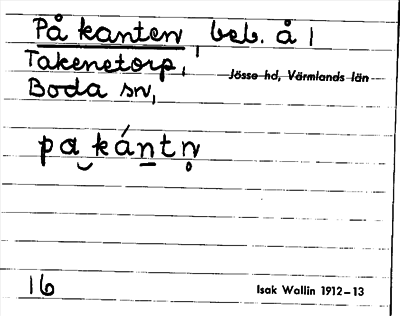 På kanten, beb. å 1
Takenetorp,
Jösse hd, Värmlands län
Boda sn,
pa kántn̥
16
Isak Wallin 1912–13